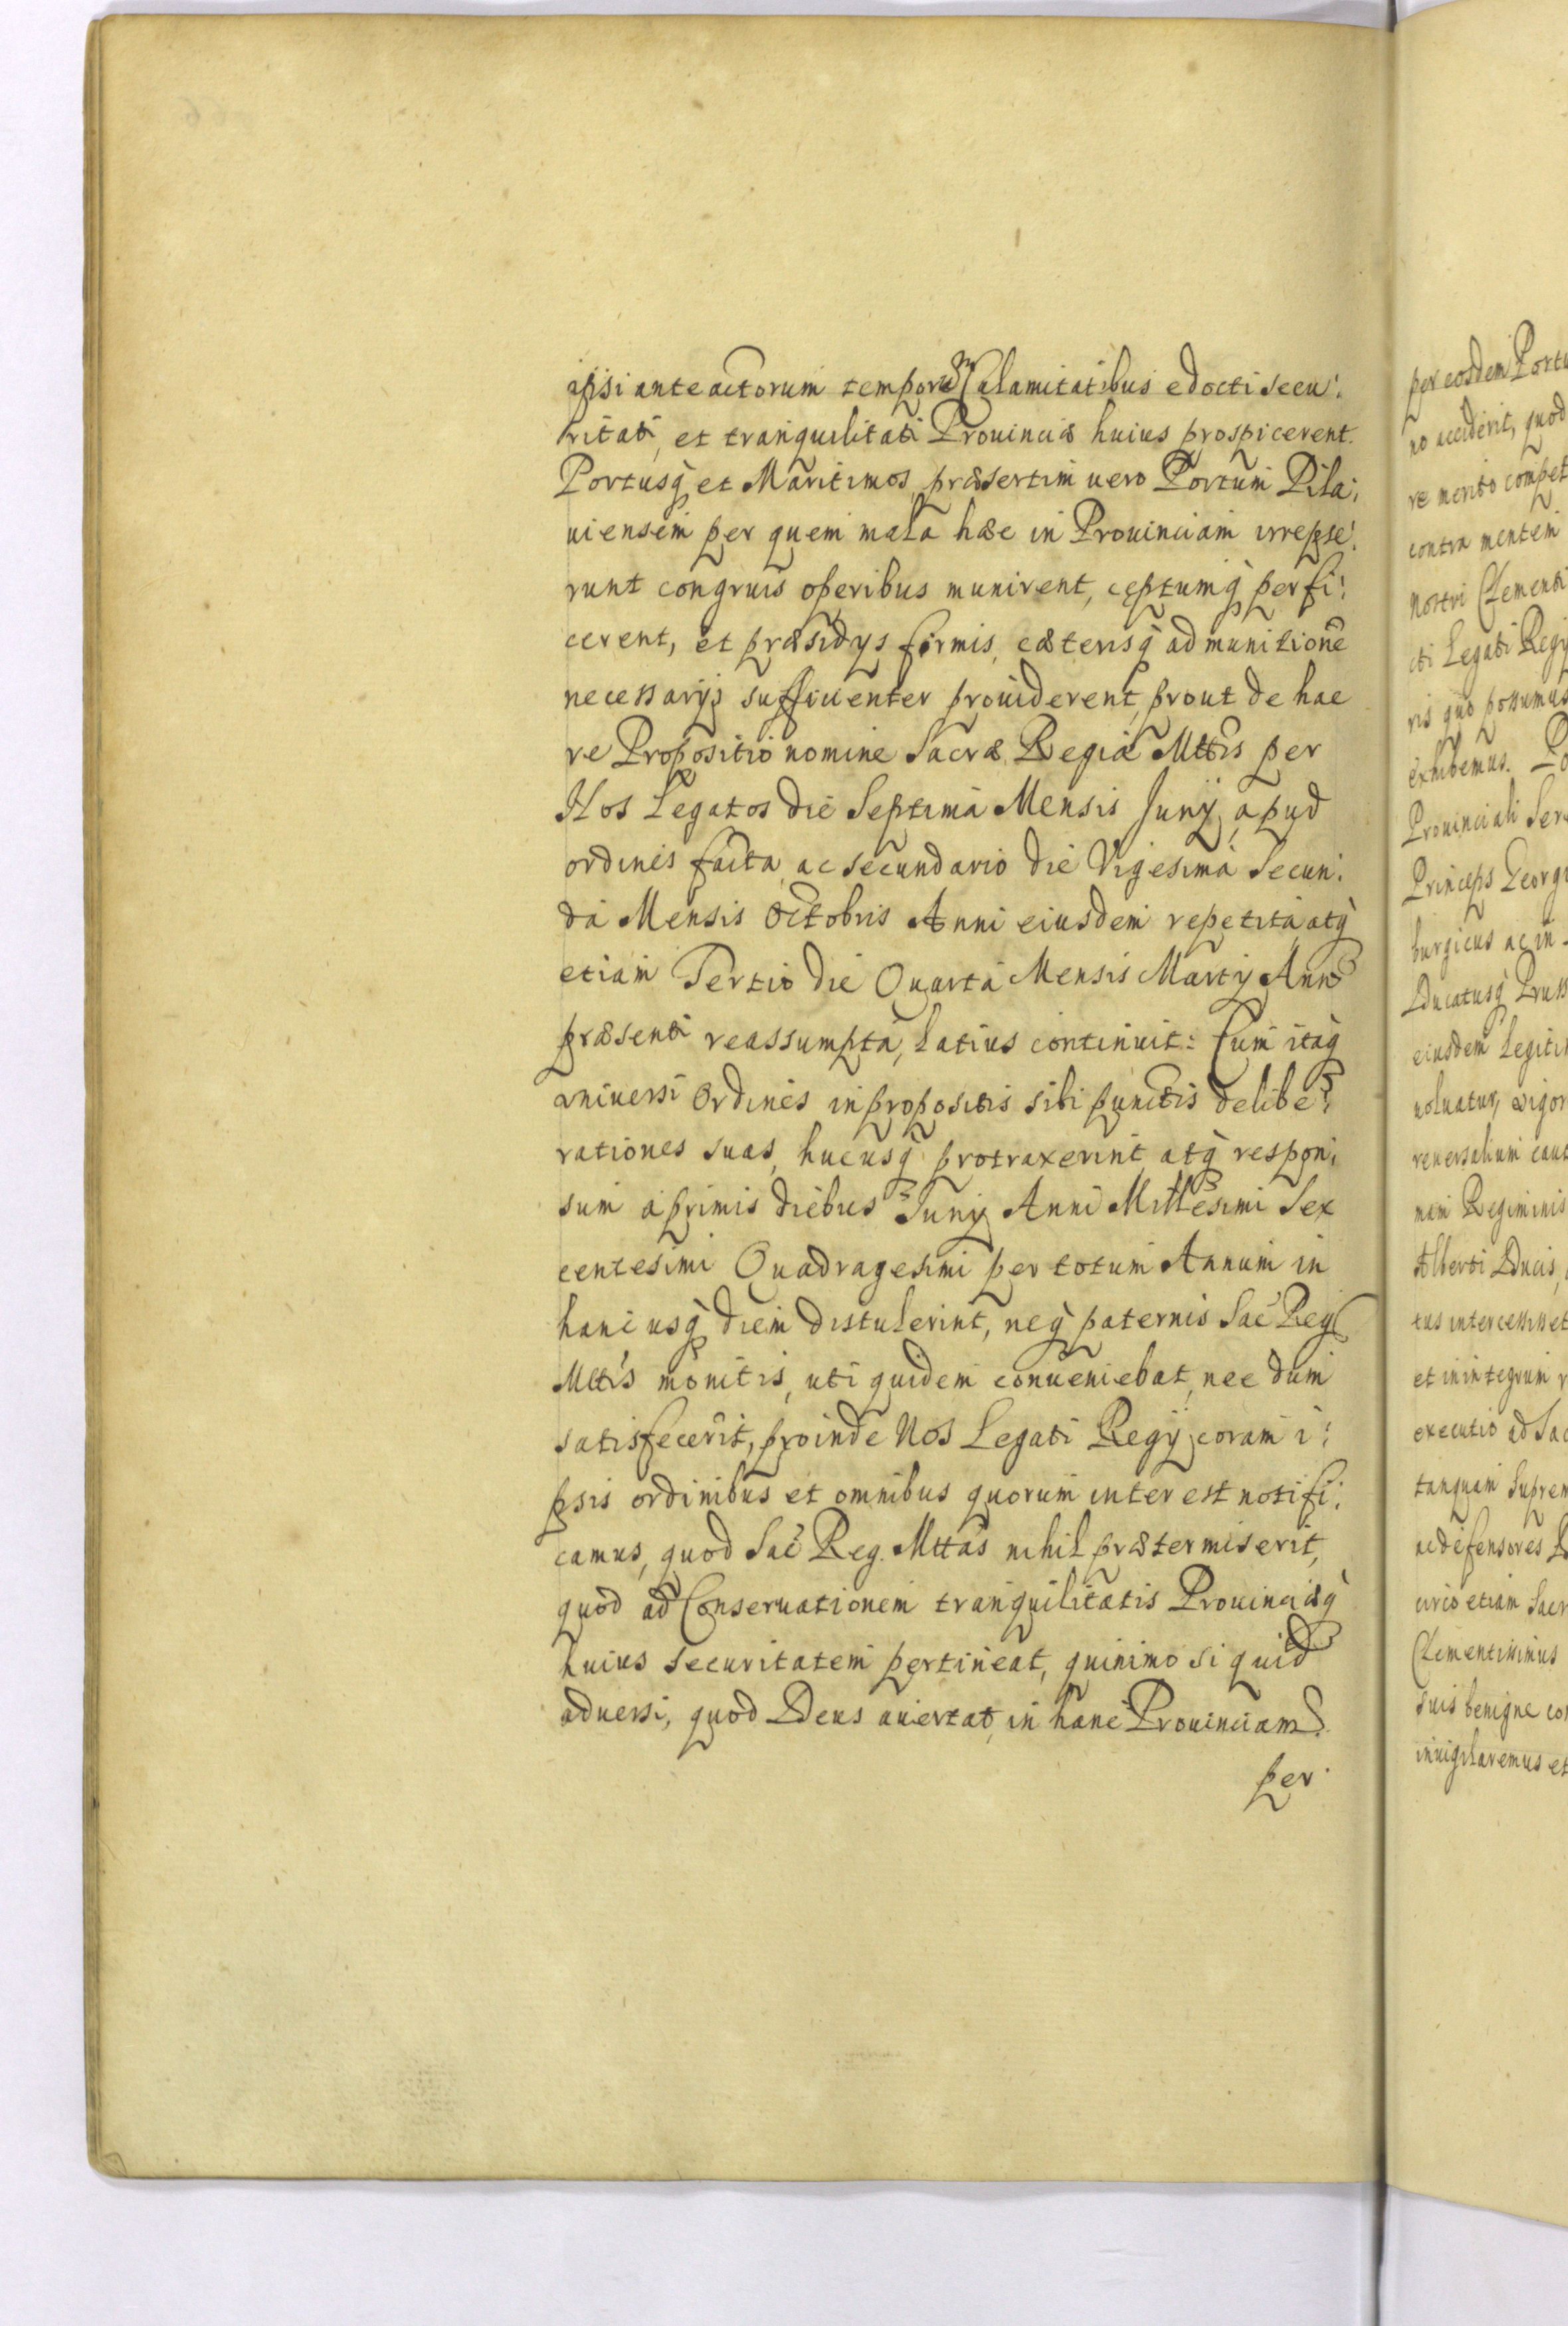 ipsi ante actorum temporũ Calamitatibus edocti secu:
ritati, et tranquilitati Prouinciæ huius prospicerent.
Portusq̀ et Maritimos, præsertim uero Portum Pila:
uiensem per quem mala hæc in Prouinciam irrepse:
runt congruis operibus munirent, cęptumq̀ perfi:
cerent, et præsidys firmis, cæterisq̀ ad munitionẽ
necessarÿs sufficienter prouiderent, prout de hac
re Propositio nomine Sacræ Regiæ Mttis per
Nos Legatos die Septima Mensis Junÿ, apud
ordines facta, ac secundario die Vigesima Secun:
da Mensis Octobris Anni eiusdem repetita, atq̀
etiam Tertio die Quarta Mensis Martÿ Anno
præsenti reassumpta, latius continuit: Cum itaq̀
vniuersi Ordines in propositis sibi punctis delibe:
rationes suas, hucusq̀ protraxerint, atq̀ respon:
sum a primis diebus Junÿ Anni Millesimi Sex
centesimi Quadragesimi per totum Annum in
hanc usq̀ diem distulerint, neq̀ paternis Sac Reg
Mttis monitis, uti quidem conueniebat, nec dum
satisfecerit, proinde Nos Legati Regÿ coram i:
psis ordinibus et omnibus quorum inter est notifi:
camus, quod Sac Reg. Mttas nihil prætermiserit,
quod ad Conseruationem tranquilitatis Prouinciæq̀
huius securitatem pertineat, quinimo si quid
aduersi, quod Deus auertat, in hanc Prouinciam
per
per eosdem Portu
no acciderit, quod
re merito compet
contra mentem
nostri Clementi
cti Legati Regÿ
ris quo possumus
exhibemus.
Prouinciali Ser
Princeps Georgi
burgicus ac in
Ducatusq̀ Pruss
eiusdem legiti
uoluatur, vigor
reuersalium caut
mam Regiminis
Alberti Ducis,
tus intercessisset
et in integrum r
executio ad Sac
tanquam Suprem
ac defensores D
circo etiam Sacr
Clementissimus
suis benigne co
inuigilaremus et